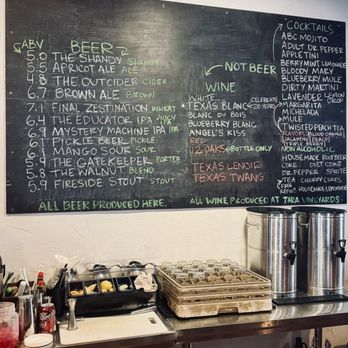 ABV BEER
5.0 THE SHANDY SHANDY
5.5 APRICOT ALE ALE
4.8 THE OUTCIDER CIDER
6.7 BROWN ALE BROWN
7.1 FINAL ZESTINATION WHEAT
6.4 THE EDUCATOR IPA
6.9 MYSTERY MACHINE IPA IPA
6.1 PICKLE BEER PICKLE
5. MANGO SOUR SOUR
5.9 THE GATEKEEPER PORTER
5.8 THE WALNUT BLEND
5.9 FIRESIDE STOUT STOUT
ALL BEER PRODUCED HERE.
NOT BEER
WINE
WHITE
TEXAS BLANC
BLANC DU BOIS
BLUEBERRY BLANC
ANGEL'S KISS
CELEBRATE
20 YEARS
RED
12 OAKS BOTTLE ONLY
TEXAS LENOIR
TEXAS TWANG
ALL WINE PRODUCED AT TARA VINEYARDS.
COCKTAILS
ABC MOJITO
ADULT DR. PEPPER
APPLETINI
BERRYMINT LEMONADE
BLOODY MARY
BLUEBERRY MULE
DIRTY MARTINI
LAVENDER LEMON DROP
MARGARITA
MICHELADA
MULE
TWISTED PEACH TEA
FLAVORS: BLOOD ORANGE
NON ALCOHOLIC
HOUSEMADE ROOTBEER
COKE DIET COKE
DR. PEPPER SPRITE
TEA CHERRY COKE
FREE REFILLS HOUSEMADE LEMONADE